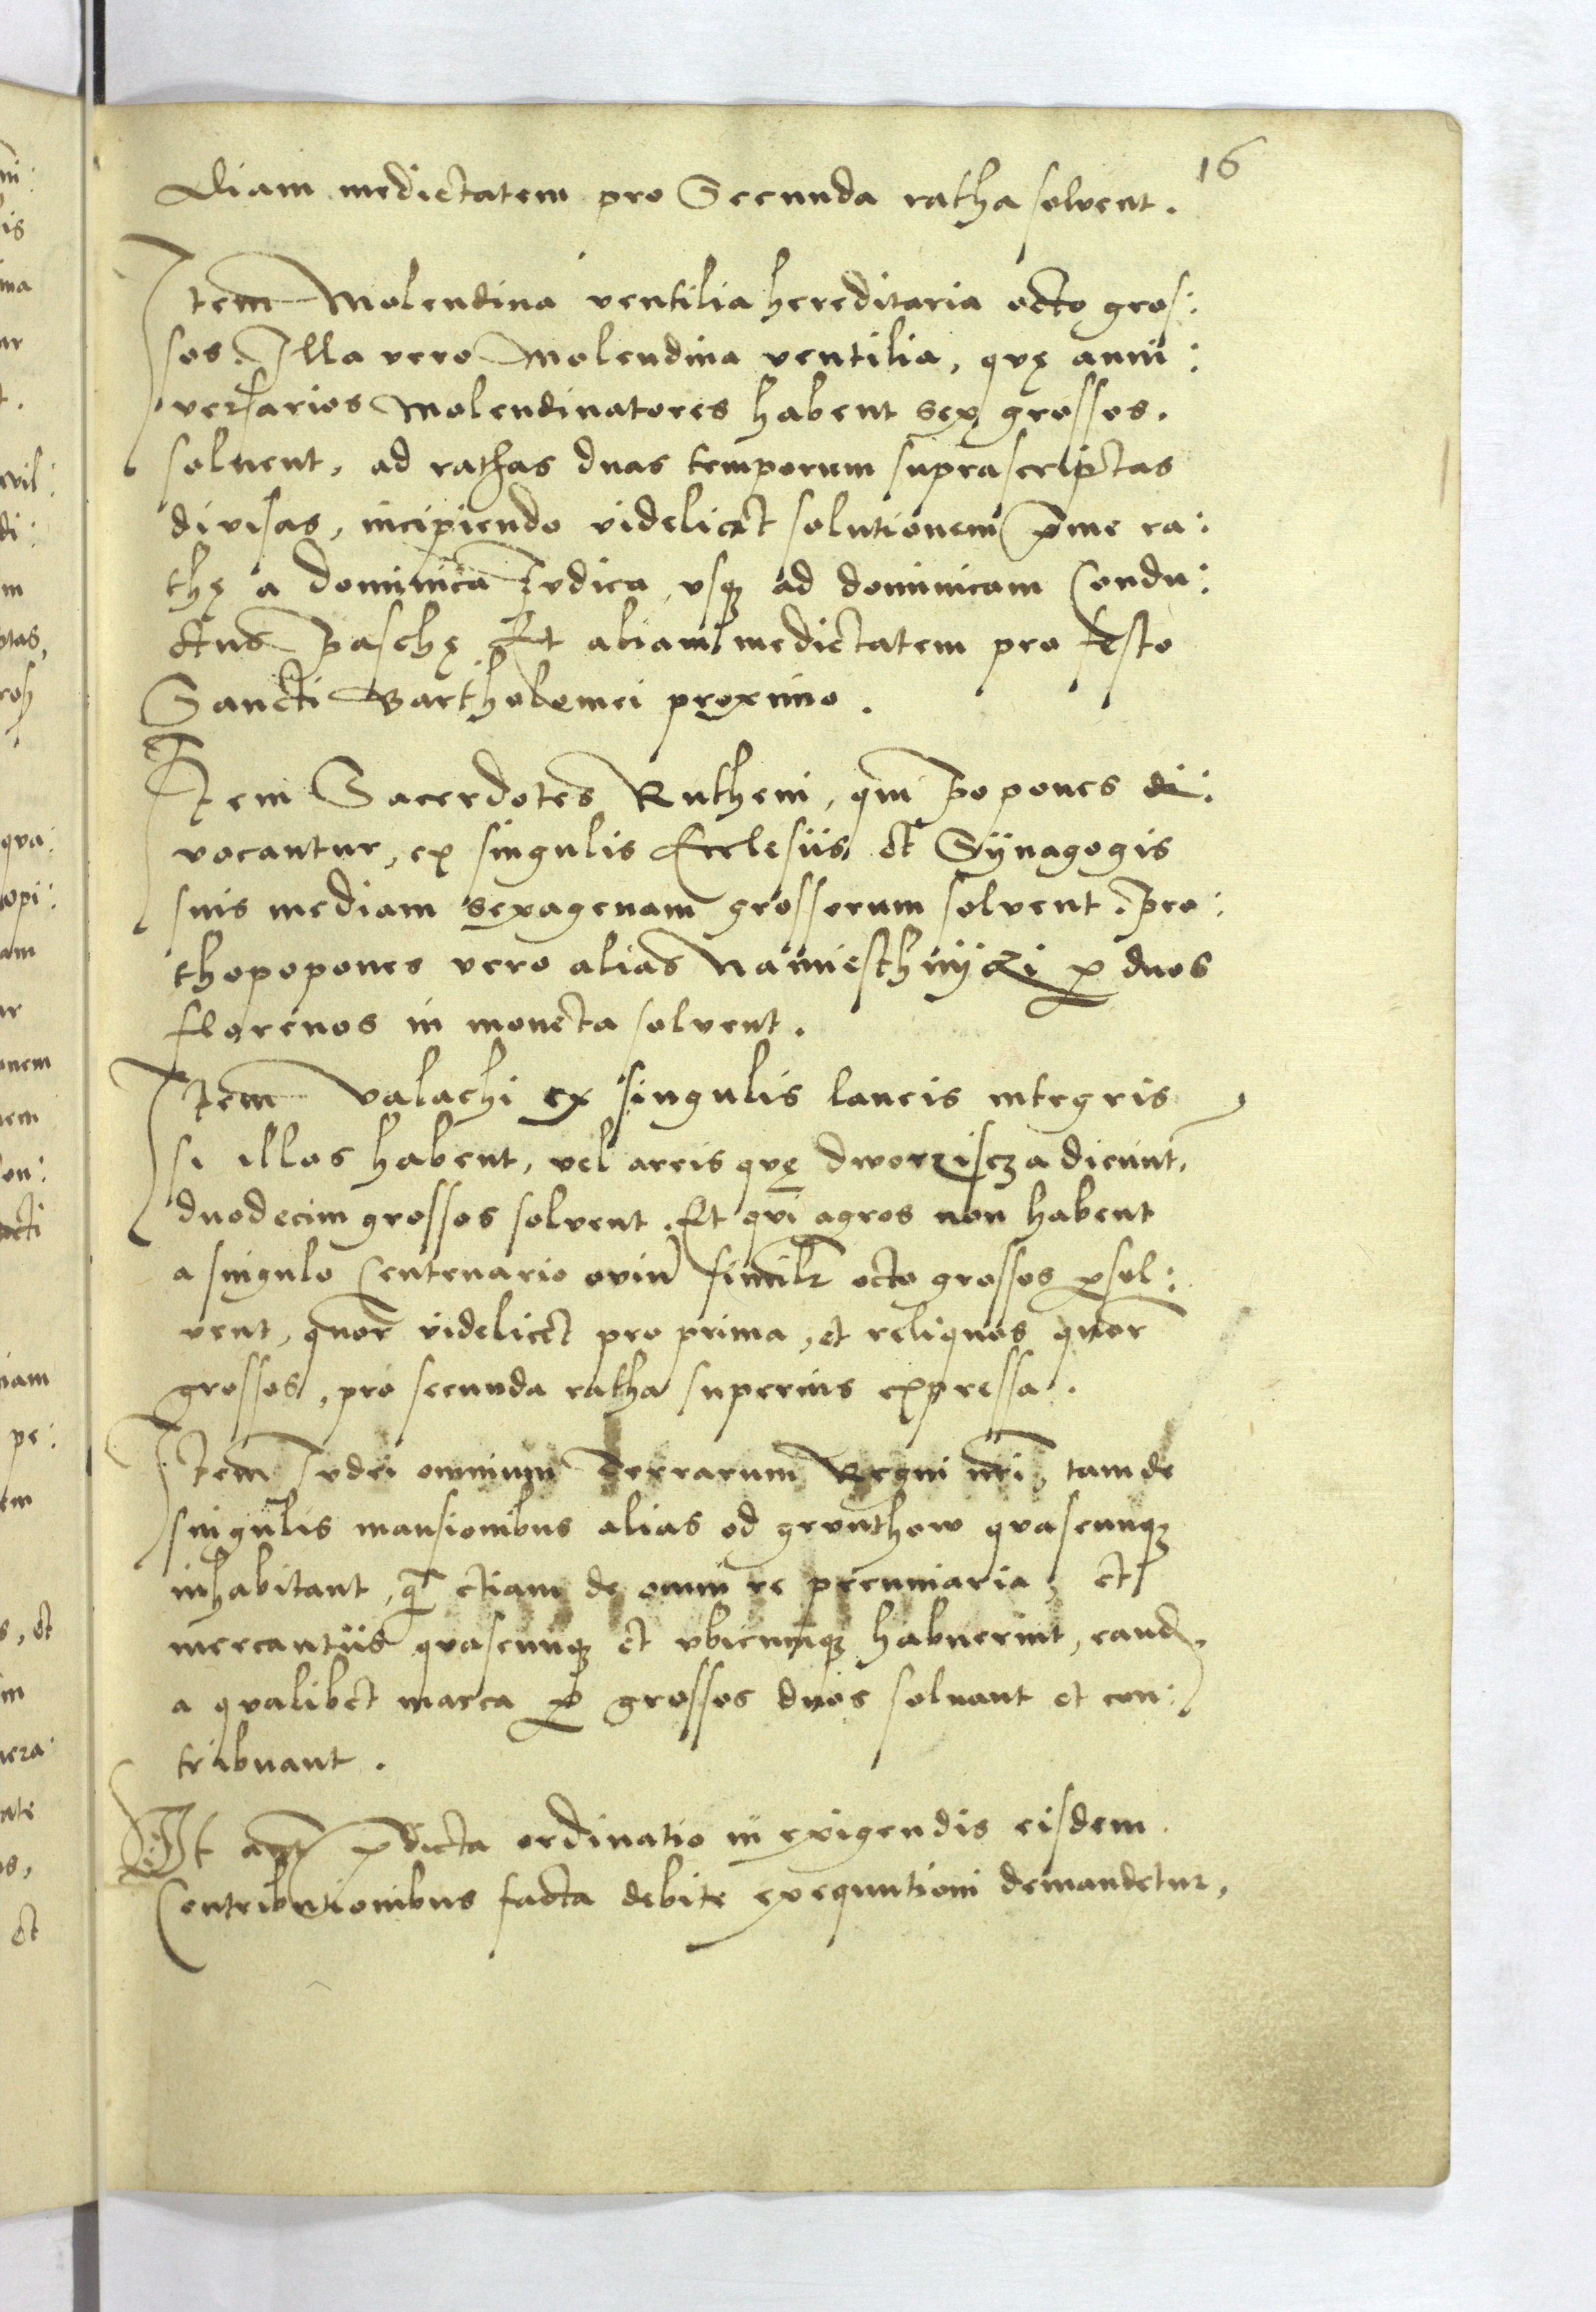 16
Aliam medietatem pro Secunda ratha solvent.
Item Molendina ventilia hereditaria octo gros:
sos. Illa vero Molendina ventilia, quę anni:
versarios Molendinatores habent sex grossos.
soluent, ad rathas duas temporum suprascriptas
divisas, incipiendo videlicet solutionem prime ra:
thę a dominica Iudica, vsq ad dominicam Condu:
ctus Paschę. Et aliam medietatem pro festo
Sancti Bartholomei proximo.
Item Sacerdotes Rutheni, qui Popones di:
vocantur, ex singulis Ecclesiis et Sÿnagogis
suis mediam sexagenam grossorum solvent. Pro:
thopopones vero alias Namiesthnijki per duos
florenos in moneta solvent.
Item Valachi ex singulis laneis integris
si illos habent, vel areis quę dworziscza dicunt,
duodecim grossos solvent. Et qui agros non habent
a singulo Centenario oviu simil'r octo grossos persol:
vent, quor videlicet pro prima, et reliquos quor
grossos, pro secunda ratha superius expressa.
Item Iudei omnium Terrarum Regni nri, tam de
singulis mansionibus alias od grunthow quascunq
inhabitant, q etiam de omni re pecuniaria, et
mercantiis quascunq et vbicunq habuerint, eand
a qualibet marca per grossos duos soluant et con:
tribuant.
Vt aut predicta ordinatio in exigendis eisdem
Contributionibus facta debite exequutioni demandetur,